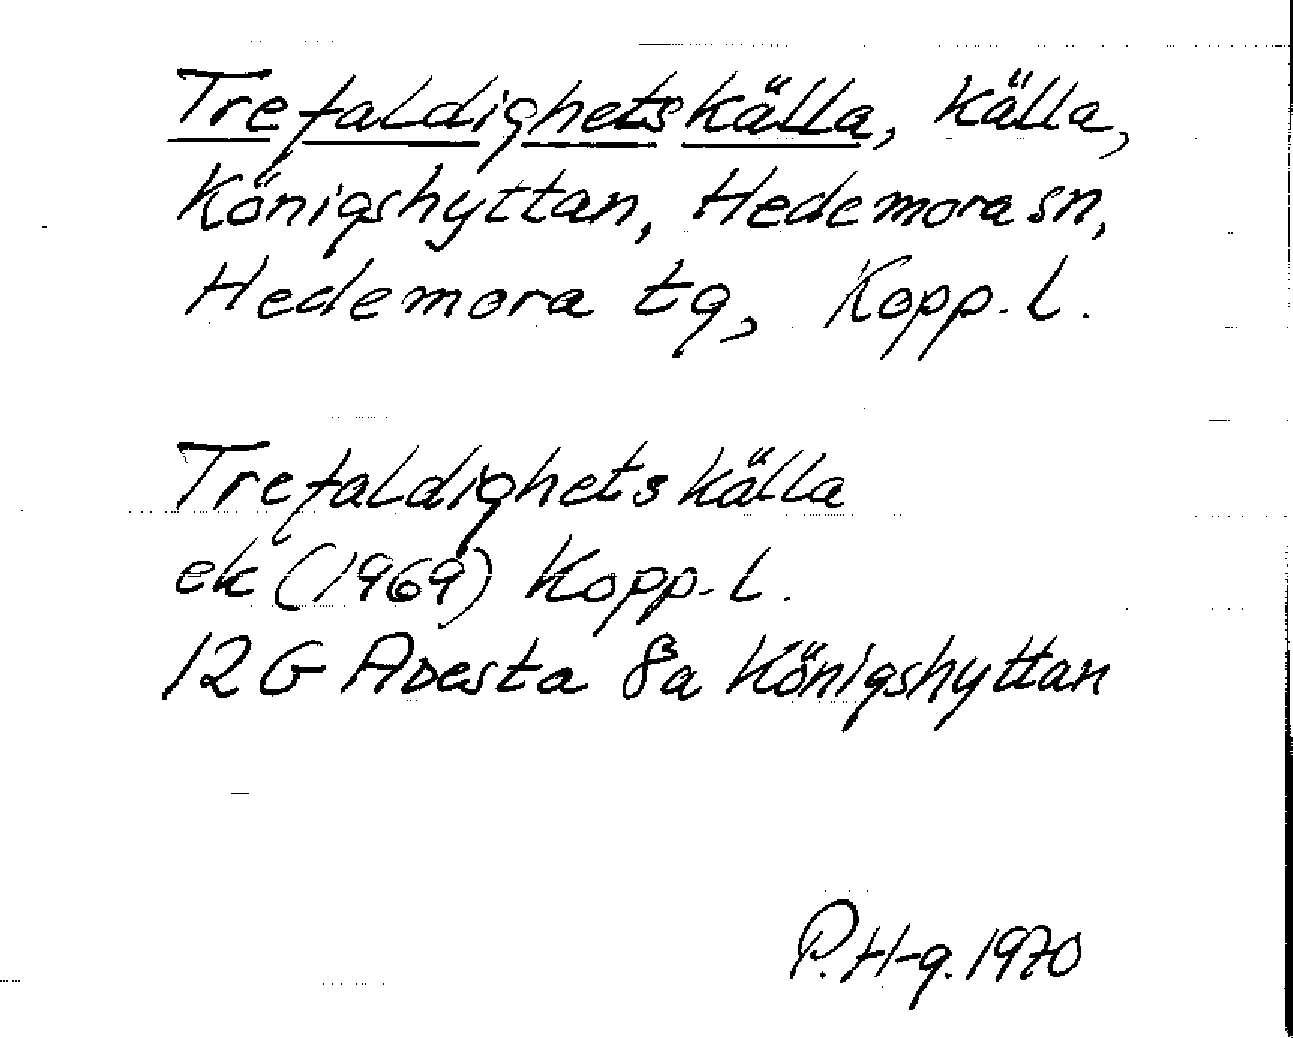 Trefaldighetskälla, källa,
Königshyttan, Hedemora sn,
Hedemora tg, Kopp. l.
Trefaldighetskälla
ek (1969) Kopp. l.
12G Avesta 8a Königshyttan
P. H-g. 1970